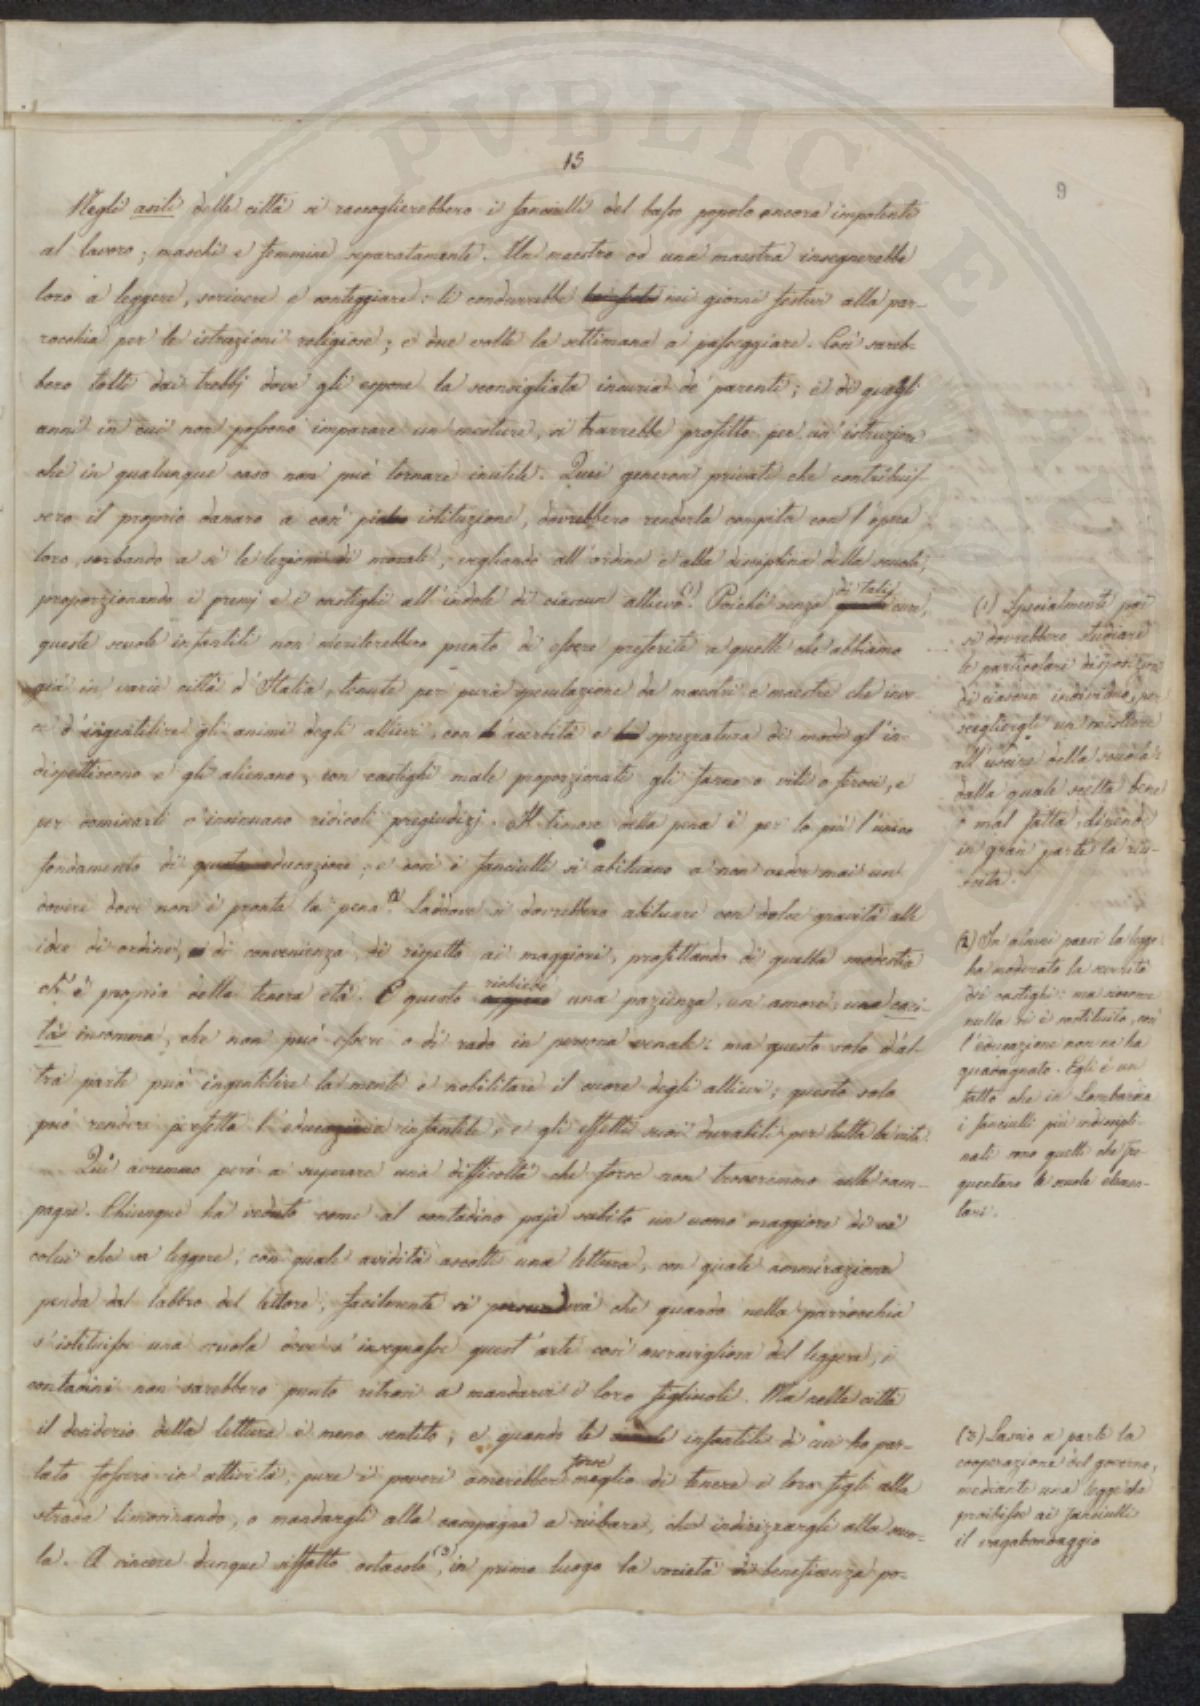 15
9
Negli asili delle città si raccoglierebbero i fanciulli del basso popolo ancora impotenti
al lavoro; maschi e femmine separatamente. Un maestro od una maestra insegnerebbe
loro a leggere, scrivere e conteggiare: li condurrebbe nei giorni festivi alla par-
rocchia per le istruzioni religiose; e due volte la settimana a passeggiare. Così sareb-
bero tolti dai trebbj dove gli espone la sconsigliata incuria de' parenti; e di quegli
anni in cui non possono imparare un mestiere, si trarrebbe profitto per un' istruzione
che in qualunque caso non può tornare inutile. Quei generosi privati che contribuis-
sero il proprio danaro a così pia istituzione, dovrebbero renderla compita con l'opera
loro, serbando a sè le lezioni di morale, vegliando all'ordine e alla disciplina della scuola,
proporzionando i premj e i castighi all'indole di ciascun allievo (1). Poichè senza di tali cure,
queste scuole infantili non meriterebbero punto di essere preferite a quelle che abbiamo
già in varie città d'Italia, tenute per pura speculazione da maestri e maestre che inve-
ce d'ingentilire gli animi degli allievi, con acerbità e sprezzatura di modi gl'in-
dispettiscono e gli alienano, con castighi male proporzionati gli fanno o vili o feroci, e
per dominarli v'insinuano ridicoli pregiudizj. Il timore della pena è per lo più l'unico
fondamento di questa educazione; e così i fanciulli si abituano a non veder mai un
dovere dove non è pronta la pena (2). Laddove si dovrebbero abituare con dolce gravità alle
idee di ordine, di convenienza, di rispetto ai maggiori, profittando di quella modestia
ch'è propria della tenera età. E questo richiede una pazienza, un amore, una cari-
tà insomma, che non può essere o di rado in persona venale: ma questo solo d'al-
tra parte può ingentilire la mente e nobilitare il cuore degli allievi; questo solo
può rendere perfetta l'educazione infantile, e gli effetti suoi durabili per tutta la vita.
Qui avremmo però a superare una difficoltà che forse non troveremmo nelle cam-
pagne. Chiunque ha veduto come al contadino paja subito un uomo maggiore di sè
colui che sa leggere, con quale avidità ascolti una lettura, con quale ammirazione
penda dal labbro del lettore, facilmente si persuaderà che quando nella parrocchia
s'istituisse una scuola dove s'insegnasse quest'arte così meravigliosa del leggere, i
contadini non sarebbero punto ritrosi a mandarvi i loro figliuoli. Ma nelle città
il desiderio della lettura è meno sentito; e quando le scuole infantili di cui ho par-
lato fossero in attività, pure i poveri amerebbero forse meglio di tenere i loro figli alla
strada limosinando, o mandargli alla campagna a rubare, che indirizzargli alla scuo-
la. A vincere dunque siffatto ostacolo (3), in primo luogo la società di beneficenza po-
(1) Specialmente poi
si dovrebbero studiare
le particolari disposizioni
di ciascun individuo, per
scegliergli un mestiere
all'uscire della scuola:
dalla quale scelta bene
o mal fatta, dipende
in gran parte la riu-
scita.
(2) In alcuni paesi la legge
ha moderato la severità
dei castighi: ma siccome
nulla vi è sostituito, così
l'educazione non ne ha
guadagnato. Egli è un
fatto che in Lombardia
i fanciulli più indiscipli-
nati sono quelli che fre-
quentano le scuole elemen-
tari.
(3) Lascio a parte la
cooperazione del governo,
mediante una legge che
proibisse ai fanciulli
il vagabondaggio